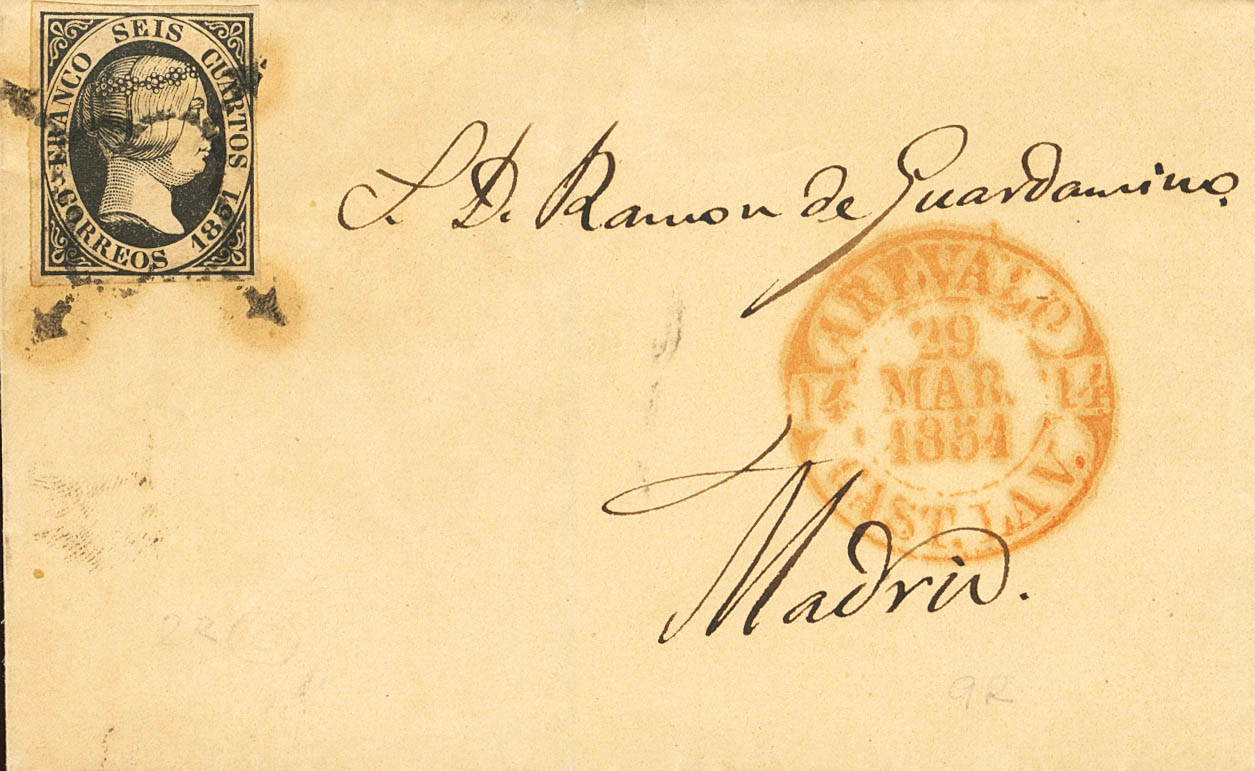 FRANCO SEIS CUARTOS
CORREOS 1851
S. D. Ramon de Guardamino.
AREVALO
29
MAR.
1851
14 14
CAST. LA V.
Madrid.
2R
9R